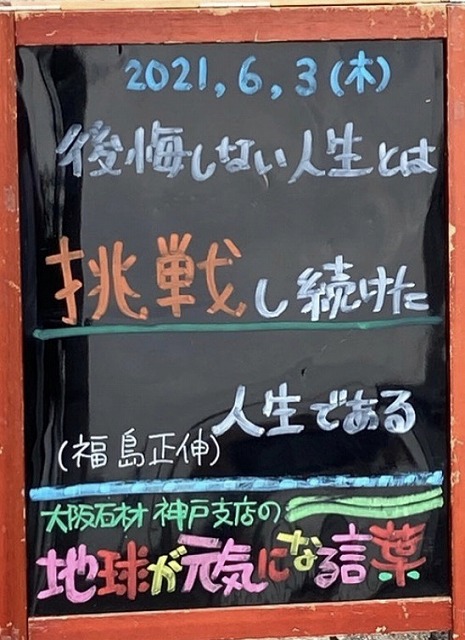 2021,6,3(木)
後悔しない人生とは
挑戦し続けた
人生である
(福島正伸)
大阪石材 神戸支店の
地球が元気になる言葉